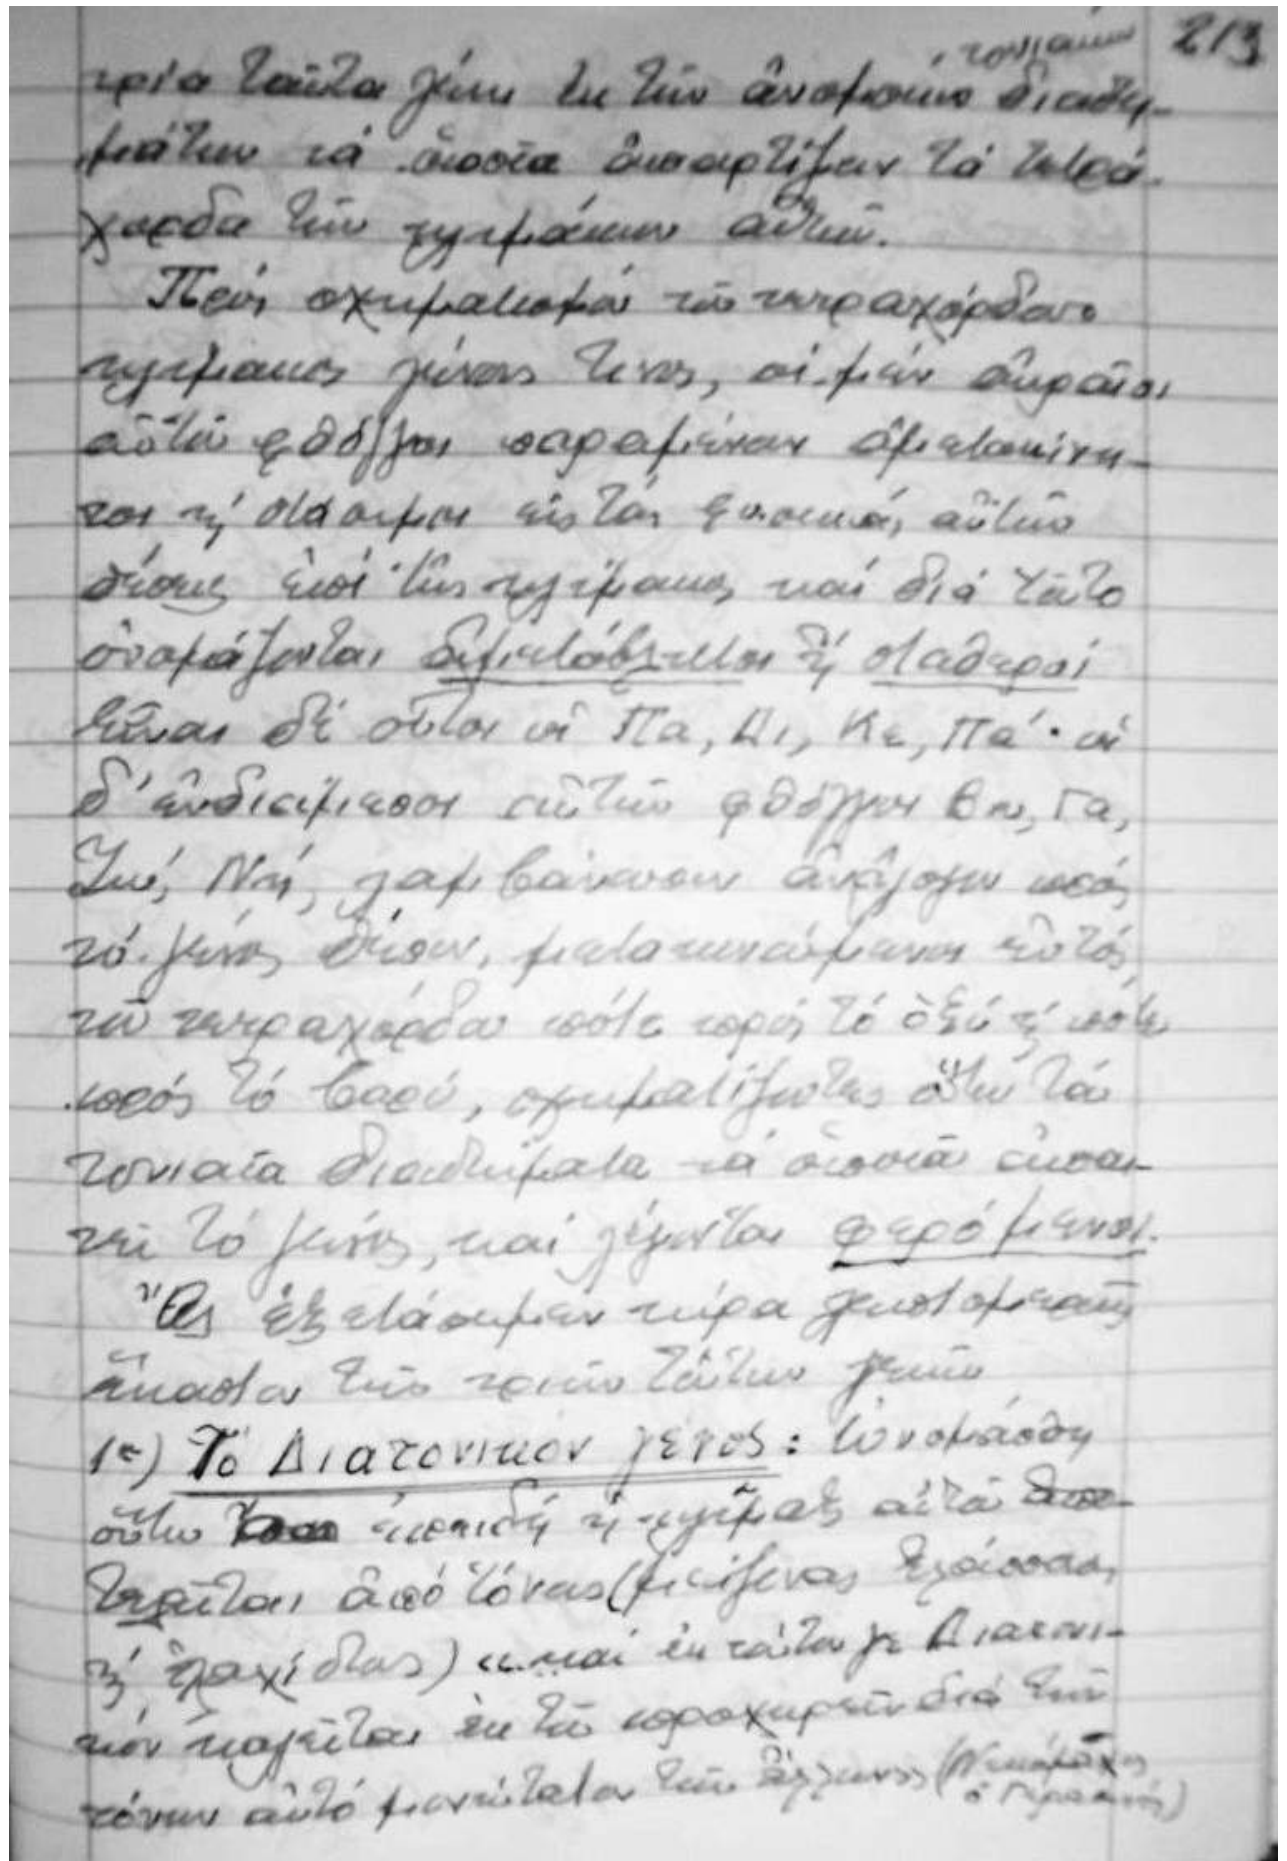 213
τονιαίων
τρία ταῦτα γένη ἐκ τῶν ἀνομοίων διαστη-
μάτων τά ὁποῖα ἀπαρτίζουν τά τετρά-
χορδα τῶν κλιμάκων αὐτῶν.
Πρός σχηματισμόν τοῦ τετραχόρδου
κλίμακος γένους τινος, οἱ μέν ἀκραῖοι
αὐτῶν φθόγγοι παραμένουν ἀμετακίνη-
τοι ἤ στάσιμοι εἰς τάς φυσικάς αὐτῶν
θέσεις ἐπί τῆς κλίμακος καί διά τοῦτο
ὀνομάζονται ἀμετάβλητοι ἤ σταθεροί
εἶναι δέ οὗτοι οἱ Πα, Δι, Κε, Πα΄· οἱ
δ' ἐνδιάμεσοι αὐτῶν φθόγγοι Βου, Γα,
Ζω΄, Νη΄, λαμβάνουσιν ἀνάλογον πρός
τό γένος θέσιν, μετακινούμενοι ἐντός
τοῦ τετραχόρδου πότε πρός τό ὀξύ ἤ πότε
πρός τό βαρύ, σχηματίζοντες οὕτω τά
τονιαῖα διαστήματα τά ὁποῖα ἀπαι-
τεῖ τό γένος, καί λέγονται φερόμενοι.
Ἄς ἐξετάσωμεν τώρα λεπτομερῶς
ἕκαστον τῶν τριῶν τούτων γενῶν
1ον) Τό Διατονικόν γένος: ὠνομάσθη
οὕτω ἐπειδή ἡ κλῖμαξ αὐτοῦ ἀπο-
τελεῖται ἀπό τόνους (μείζονας ἐλάσσονας
ἤ ἐλαχίστους) «καί ἐκ τούτου γε Διατονι-
κόν καλεῖται ἐκ τοῦ προχωρεῖν διά τῶν
τόνων αὐτό μονώτατον τῶν ἄλλων» (Νικόμαχος
ὁ Γερασηνός)